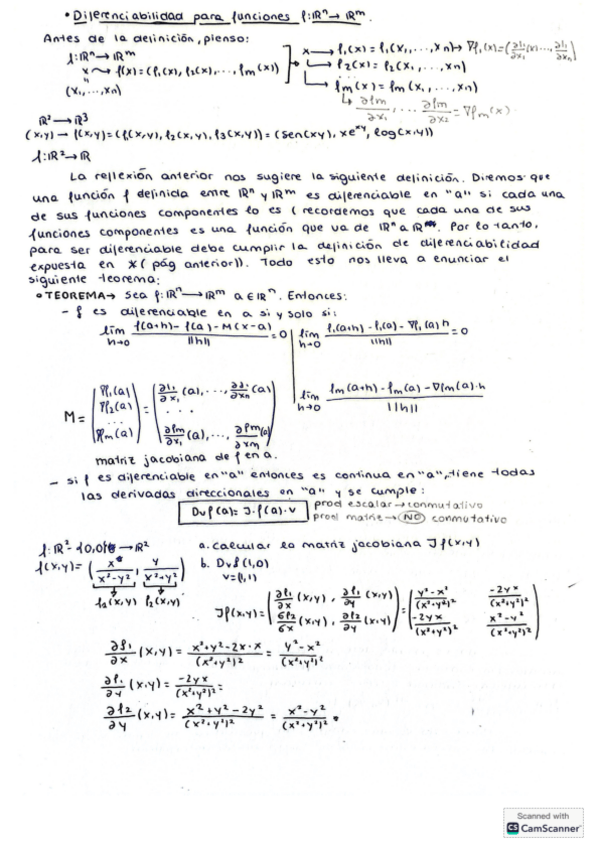 • Diferenciabilidad para funciones f:ℝⁿ→ℝᵐ.
Antes de la definición, pienso:
f:ℝⁿ→ℝᵐ
x ⟿ f(x)=(f₁(x), f₂(x),..., fₘ(x))
(x₁,...,xₙ)
x → f₁(x) = f₁(x₁,...,xₙ) → ∇f₁(x)=(∂f₁/∂x₁(x)..., ∂f₁/∂xₙ)
↳ f₂(x) = f₂(x₁,...,xₙ)
↳ fₘ(x) = fₘ(x₁,...,xₙ)
↳ ∂fₘ/∂x₁, ... ∂fₘ/∂x₂ = ∇fₘ(x)
ℝ²→ℝ³
(x,y) → f(x,y)=(f₁(x,y), f₂(x,y), f₃(x,y)) = (sen(xy), xe^xy, log(x·y))
f:ℝ²→ℝ
La reflexión anterior nos sugiere la siguiente definición. Diremos que
una función f definida entre ℝⁿ y ℝᵐ es diferenciable en "a" si cada una
de sus funciones componentes lo es (recordemos que cada una de sus
funciones componentes es una función que va de ℝⁿ a ℝ. Por lo tanto,
para ser diferenciable debe cumplir la definición de diferenciabilidad
expuesta en * (pág anterior)). Todo esto nos lleva a enunciar el
siguiente teorema:
• TEOREMA → Sea f:ℝⁿ→ℝᵐ a∈ℝⁿ. Entonces:
- f es diferenciable en a si y solo si:
lim h→0 (f(a+h)-f(a)-M(x-a))/||h|| = 0
lim h→0 (f₁(a+h)-f₁(a)-∇f₁(a)h)/||h|| = 0
lim h→0 (fₘ(a+h)-fₘ(a)-∇fₘ(a)·h)/||h||
M = (∇f₁(a) ∇f₂(a) ... ∇fₘ(a)) = (∂f₁/∂x₁(a),..., ∂f₁/∂xₙ(a) ... ∂fₘ/∂x₁(a),..., ∂fₘ/∂xₙ(a))
matriz jacobiana de f en a.
- si f es diferenciable en "a" entonces es continua en "a", tiene todas
las derivadas direccionales en "a" y se cumple:
Dvf(a)= J·f(a)·v
prod escalar → conmutativo
prod matriz → NO conmutativo
f:ℝ²-{0,0}→ℝ²
a. calcular la matriz jacobiana Jf(x,y)
f(x,y)= (x/(x²-y²), y/(x²+y²))
f₁(x,y) f₂(x,y)
b. Dvf(1,0)
v=(1,1)
Jf(x,y)= (∂f₁/∂x (x,y), ∂f₁/∂y (x,y) ∂f₂/∂x (x,y), ∂f₂/∂y (x,y)) = (y²-x²/(x²+y²)² -2yx/(x²+y²)² -2yx/(x²+y²)² x²-y²/(x²+y²)²)
∂f₁/∂x (x,y) = (x²+y²-2x·x)/(x²+y²)² = (y²-x²)/(x²+y²)²
∂f₁/∂y (x,y) = -2yx/(x²+y²)² =
∂f₂/∂y (x,y) = (x²+y²-2y²)/(x²+y²)² = (x²-y²)/(x²+y²)² •
Scanned with
CS CamScanner